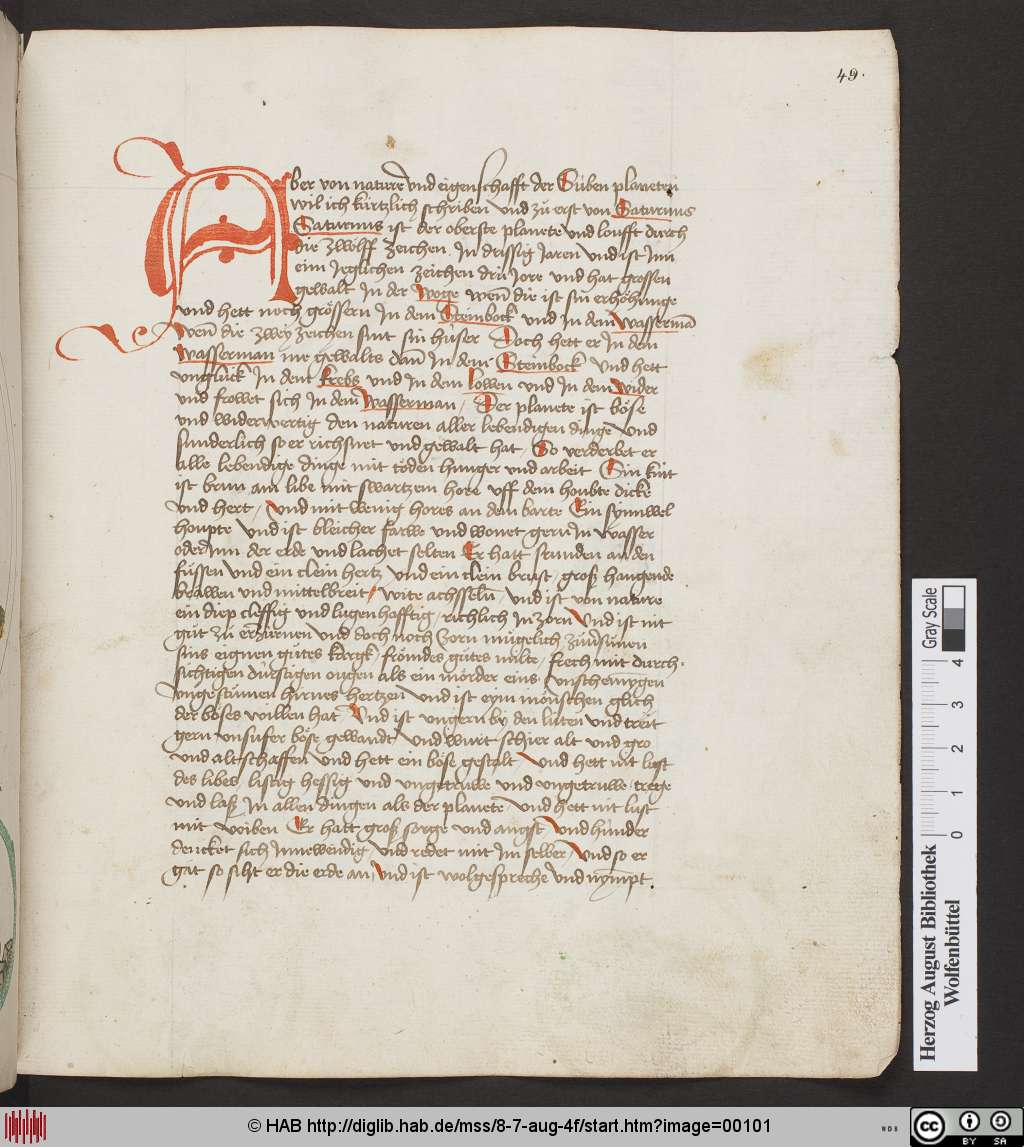 49.
Aber von nature vnd eigenschafft der Suben planeten
wil ich kurtzlich schriben vnd zů erst von Saturnus
Saturnus ist der oberste planete vnd loufft durch
die zwolff zeichen In drissig Jaren vnd ist Inn
eim Jeglichen zeichen dru Jore vnd hat grossen
gewalt In der woge wen̄ die ist sin erhöhunge
vnd hett noch grössern In dem Steinbock vnd in dem Wasserman̄
wen̄ die zwey zeichen sint sin hüser Doch hett er In dem
Wasserman me gewalts dan̄ In dem Steinbock vnd hett
vnglück In dem krebs vnd in dem Löwen vnd In dem wider
vnd frowet sich In dem Wasserman / Der planete ist böse
vnd widerwertig den naturen aller lebendigen dinge vnd
sunderlich so er richsnet vnd gewalt hat / So verderbet er
alle lebendige dinge mit töden hunger vnd arbeit Sin kint
ist brun am libe mit swartzem hore vff dem houbte dicke
vnd hert / vnd mit wenig hores an dem barte Ein synnwel
houpte vnd ist bleicher farwe vnd wonet gern In wasser
oder Inn der erde vnd lachet selten Er hatt scrunden an den
füssen vnd ein clein hertz vnd ein clein brust / groß hangende
brawen vnd mittelbreit / wite achsseln̄ / vnd ist von nature
ein diep cleffig vnd lugenhafftig / richlich In zorn vnd ist nit
gůt zů erzürnen vnd doch noch zorn mügelich
sins eignen gůtes karg / frömdes gůtes milte / frech mit durch-
sichtigen dürstigen ougen als ein mörder eins vnschemygen
vngestümen hirnes hertzen vnd ist eym mönschen glich
der böses willen hat / Vnd ist vngern by den lüten vnd treit
gern vnsufer böse gewandt / vnd wurt schier alt vnd gro
vnd altschaffen vnd hett ein böse gestalt / vnd hett nit lust
des libes / listig hessig vnd vngetruwe vnd vngetruwe / trege
vnd laß In allen dingen als der planete vnd hett nit lust
mit wiben Er hatt groß sorge vnd angst / vnd hinder
dencket sich Innewendig vnd redet mit Im selber / vnd so er
gat so siht er die erde an / vnd ist wolgespreche vnd nympt
Herzog August Bibliothek
Wolfenbüttel
0 1 2 3 4
Gray Scale
© HAB http://diglib.hab.de/mss/8-7-aug-4f/start.htm?image=00101
WDB
cc BY SA